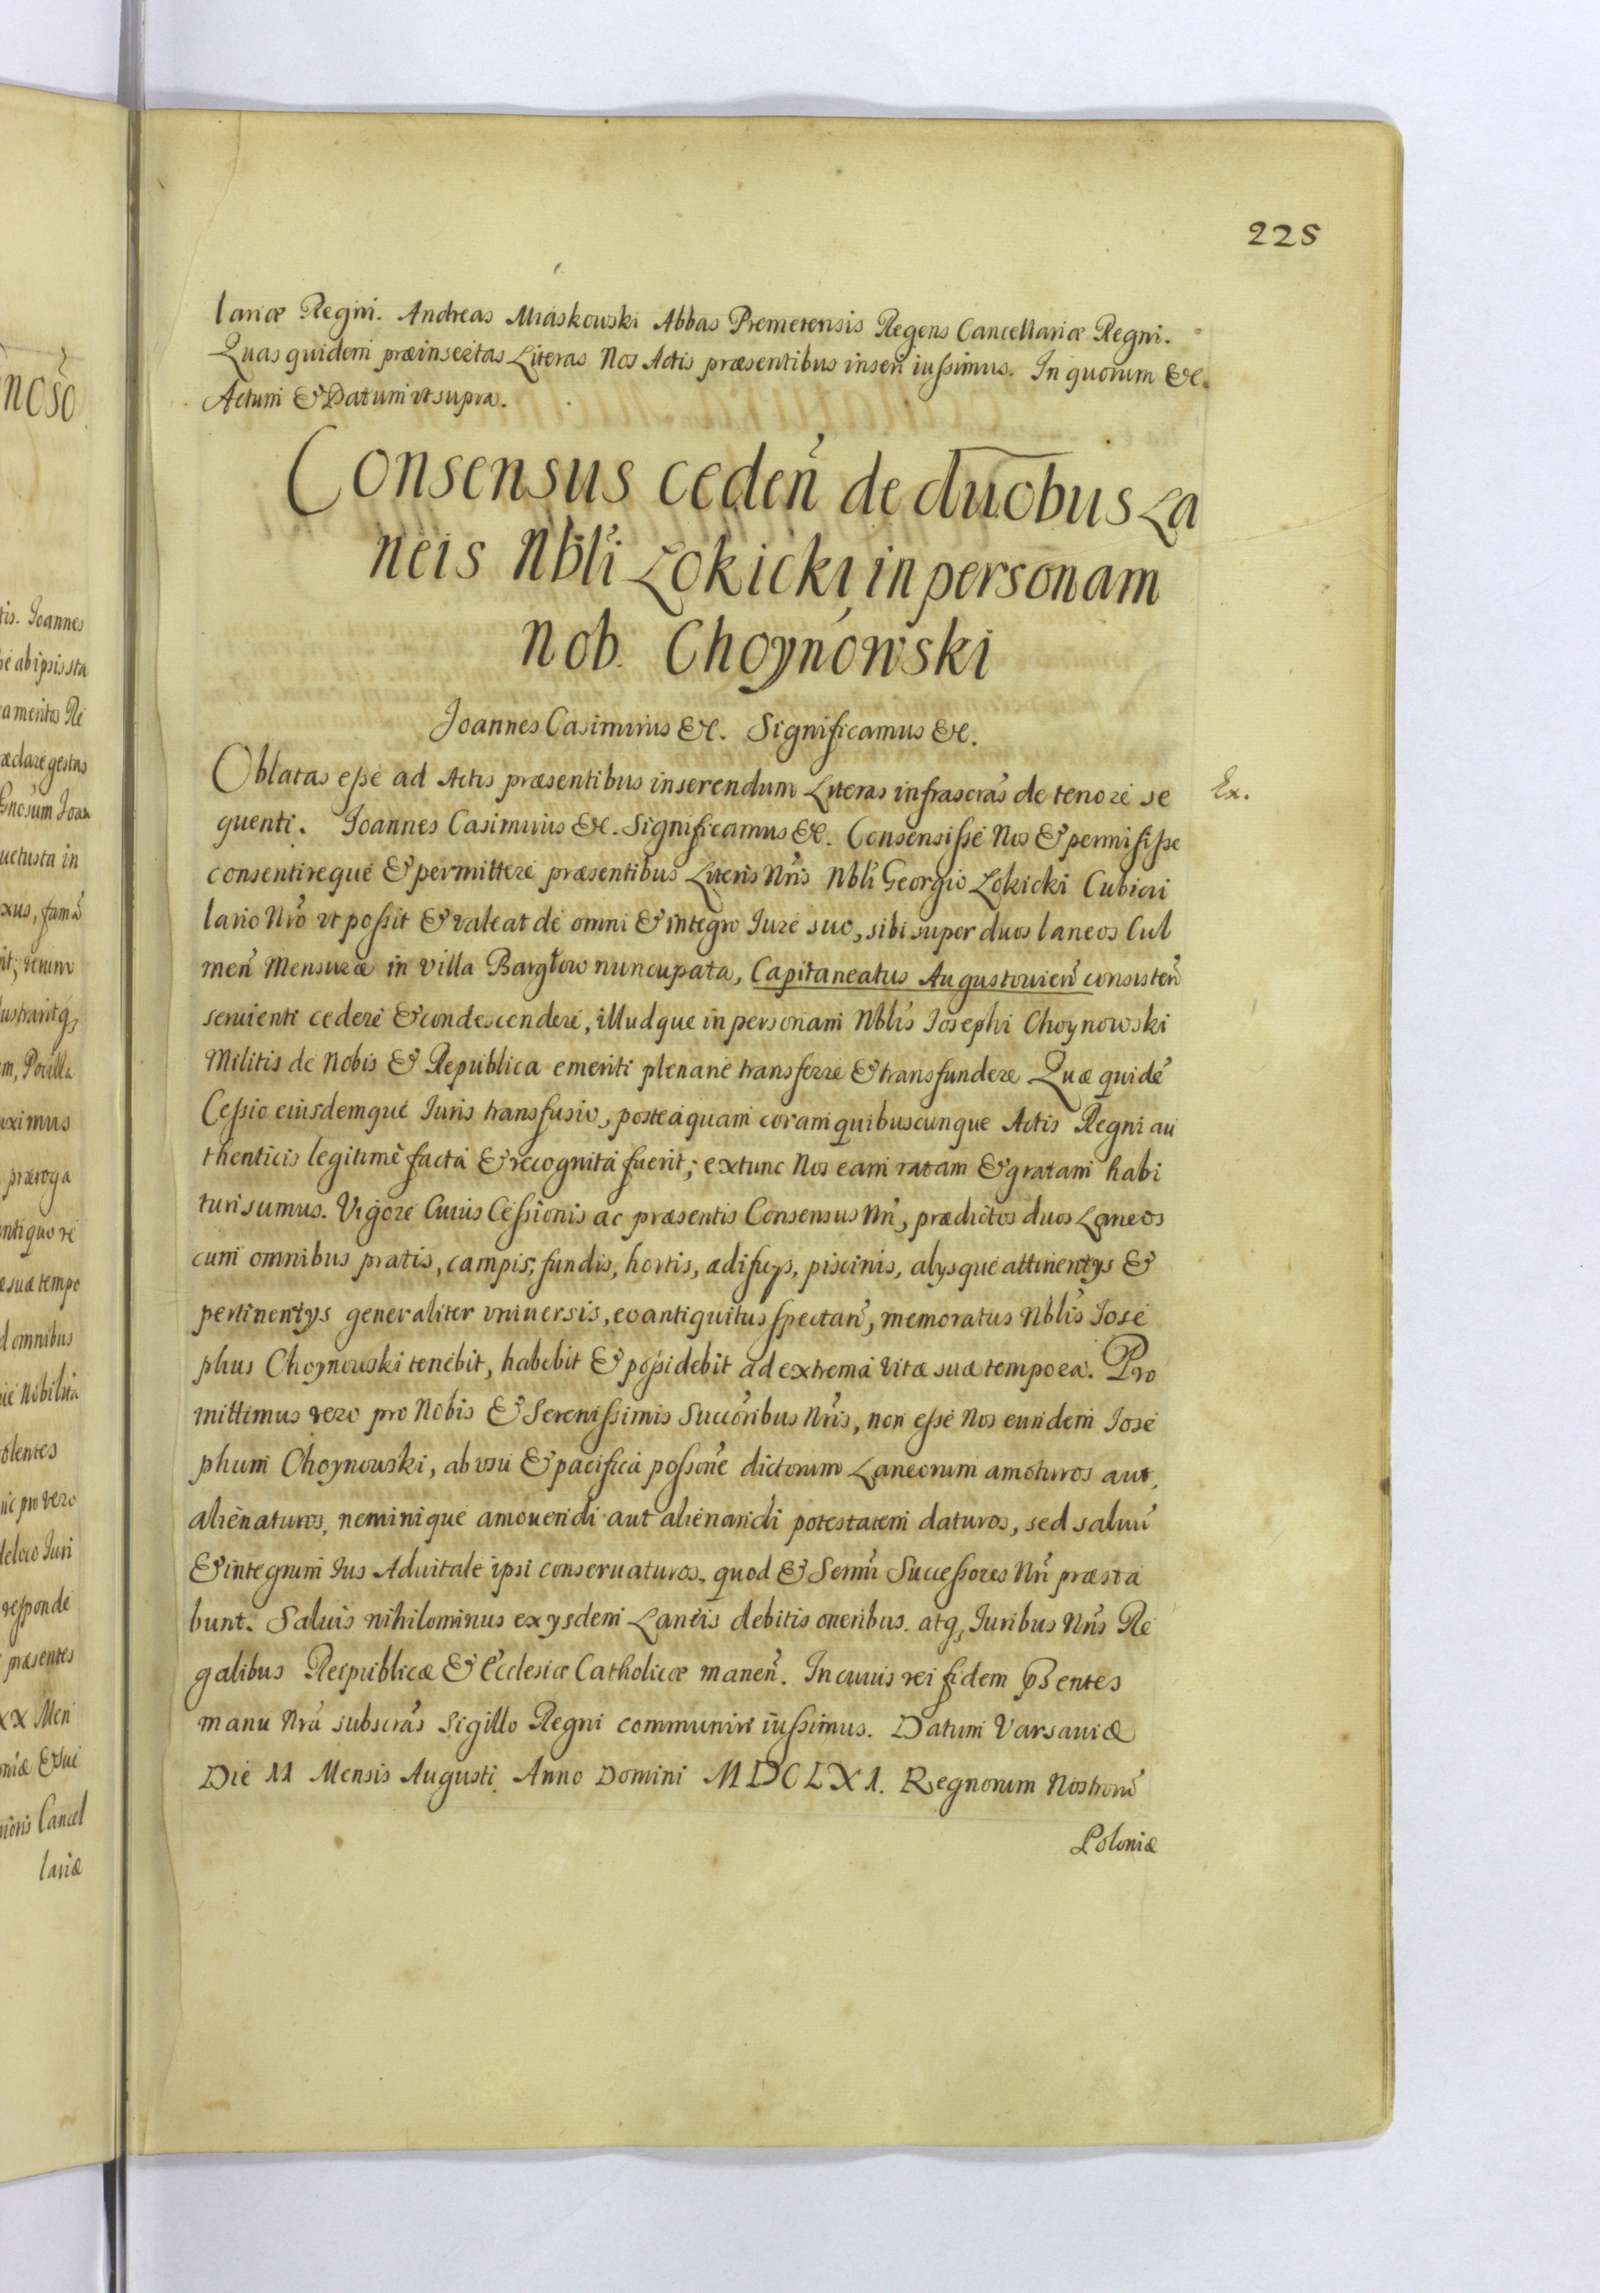 225
lariæ Regni. Andreas Miaskowski Abbas Premetensis Regens Cancellariæ Regni.
Quas quidem præinsertas Literas Nos Actis præsentibus inseri iussimus. In quorum &c.
Actum & Datum ut supra.
Consensus ceden̄ de duobus La
neis Nbl̄i Lokicki in personam
Nob. Choynowski
Joannes Casimirus &c. Significamus &c.
Oblatas esse ad Actis præsentibus inserendum Literas infrascrās de tenore se
Ex.
quenti. Joannes Casimirus &c. Significamus &c. Consensisse Nos & permisisse
consentireque & permittere præsentibus Literis Nr̄is Nbl̄i Georgio Lokicki Cubicu
lario Nr̄o ut possit & valeat de omni & integro Jure suo, sibi super duos laneos Cul
men̄ Mensuræ in villa Bargłow nuncupata, Capitaneatus Augustowien̄ consisten̄
seruienti cedere & condescendere, illudque in personam Nbl̄is Josephi Choynowski
Militis de Nobis & Republica emeriti plenarie transferre & transfundere Quæ quidē
Cessio eiusdemque Juris transfusio, posteaquam coram quibuscunque Actis Regni au
thenticis legitimè facta & recognita fuerit; extunc Nos eam ratam & gratam habi
turi sumus. Vigore Cuius Cessionis ac præsentis Consensus Nr̄i, prædictos duos Laneos
cum omnibus pratis, campis, fundis, hortis, ædificys, piscinis, alysque attinentys &
pertinentys generaliter vniuersis, eo antiquitus spectan̄, memoratus Nbl̄is Jose
phus Choynowski tenebit, habebit & possidebit ad extrema vitæ suæ tempora. Pro
mittimus vero pro Nobis & Serenissimis Succōribus Nr̄is, non esse Nos eundem Jose
phum Choynowski, ab vsu & pacifica possōne dictorum Laneorum amoturos aut
alienaturos, neminique amouendi aut alienandi potestatem daturos, sed saluū
& integrum Jus Aduitale ipsi conseruaturos, quod & Sermī Successores Nr̄i præsta
bunt. Saluis nihilominus ex ysdem Laneis debitis oneribus, atq, Juribus Nr̄is Re
galibus Reipublicæ & Ecclesiæ Catholicæ manen̄. In cuius rei fidem p̄sentes
manu Nr̄a subscrās Sigillo Regni communiri iussimus. Datum Varsauiæ
Die 11 Mensis Augusti Anno Domini MDCLX1. Regnorum Nostrorū
Poloniæ